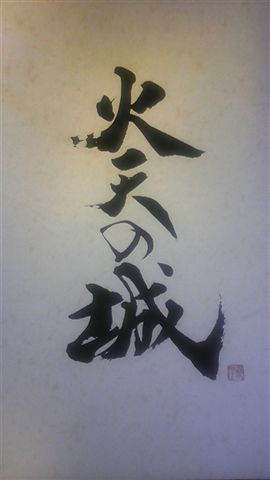 火天の城